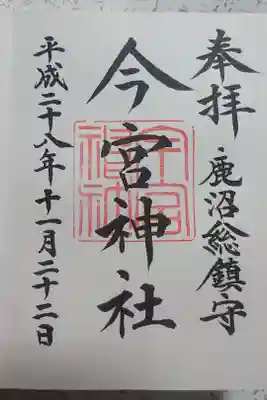 奉拝
鹿沼総鎮守
今宮神社
平成二十八年十一月二十二日